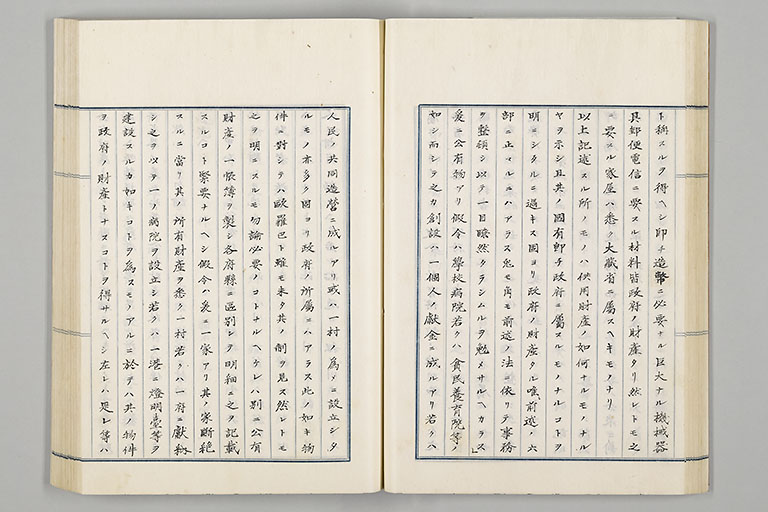 ト稱スルヲ得ヘシ即チ造幣ニ必要ナル巨大ナル機械器
具郵便電信ニ要スル材料皆政府ノ財產タリ然レトモ之
ニ要スル家屋ハ悉ク大藏省ニ屬スヘキモノナリ
以上記述スル所ノモノハ供用財產ノ如何ナルモノナル
ヤヲ示シ且其ノ國有即チ政府ニ屬スルモノナルコトヲ
明ニシタルニ過キス固ヨリ政府ノ財產タル唯前述ノ六
部ニ止マルニハアラス兎モ角モ前述ノ法ニ依リテ事務
ヲ整頓シ以テ一目瞭然タラシムルヲ勉メサルヘカラス」
爰ニ公有物アリ假令ハ學校病院若クハ貧民養育院等ノ
如シ而シテ之カ創設ハ一個人ノ獻金ニ成ルアリ若クハ
人民ノ共同造營ニ成ルアリ或ハ一村ノ爲メニ設立シタ
ルモノ亦多ク固ヨリ政府ノ所屬ニハアラス此ノ如キ物
件ニ對シテハ歐羅巴ト雖モ未タ其ノ制ヲ見ス然レトモ
之ヲ明ニスルモ勿論必要ノコトナルヘケレハ別ニ公有
財產ノ一帳簿ヲ製シ各府縣ニ區別シテ明細ニ之ヲ記載
スルコト緊要ナルヘシ假令ハ爰ニ一家アリ其ノ家斷絕
スルニ當リ其ノ所有財產ヲ悉ク一村若クハ一府ニ獻納
シ之ヲ以テ一ノ病院ヲ設立シ若クハ一港ニ燈明臺等ヲ
建設スルカ如キコトヲ為スモノアルニ於テハ其ノ物件
ヲ政府ノ財產トナスコトヲ得サルヘシ左レハ是レ等ハ